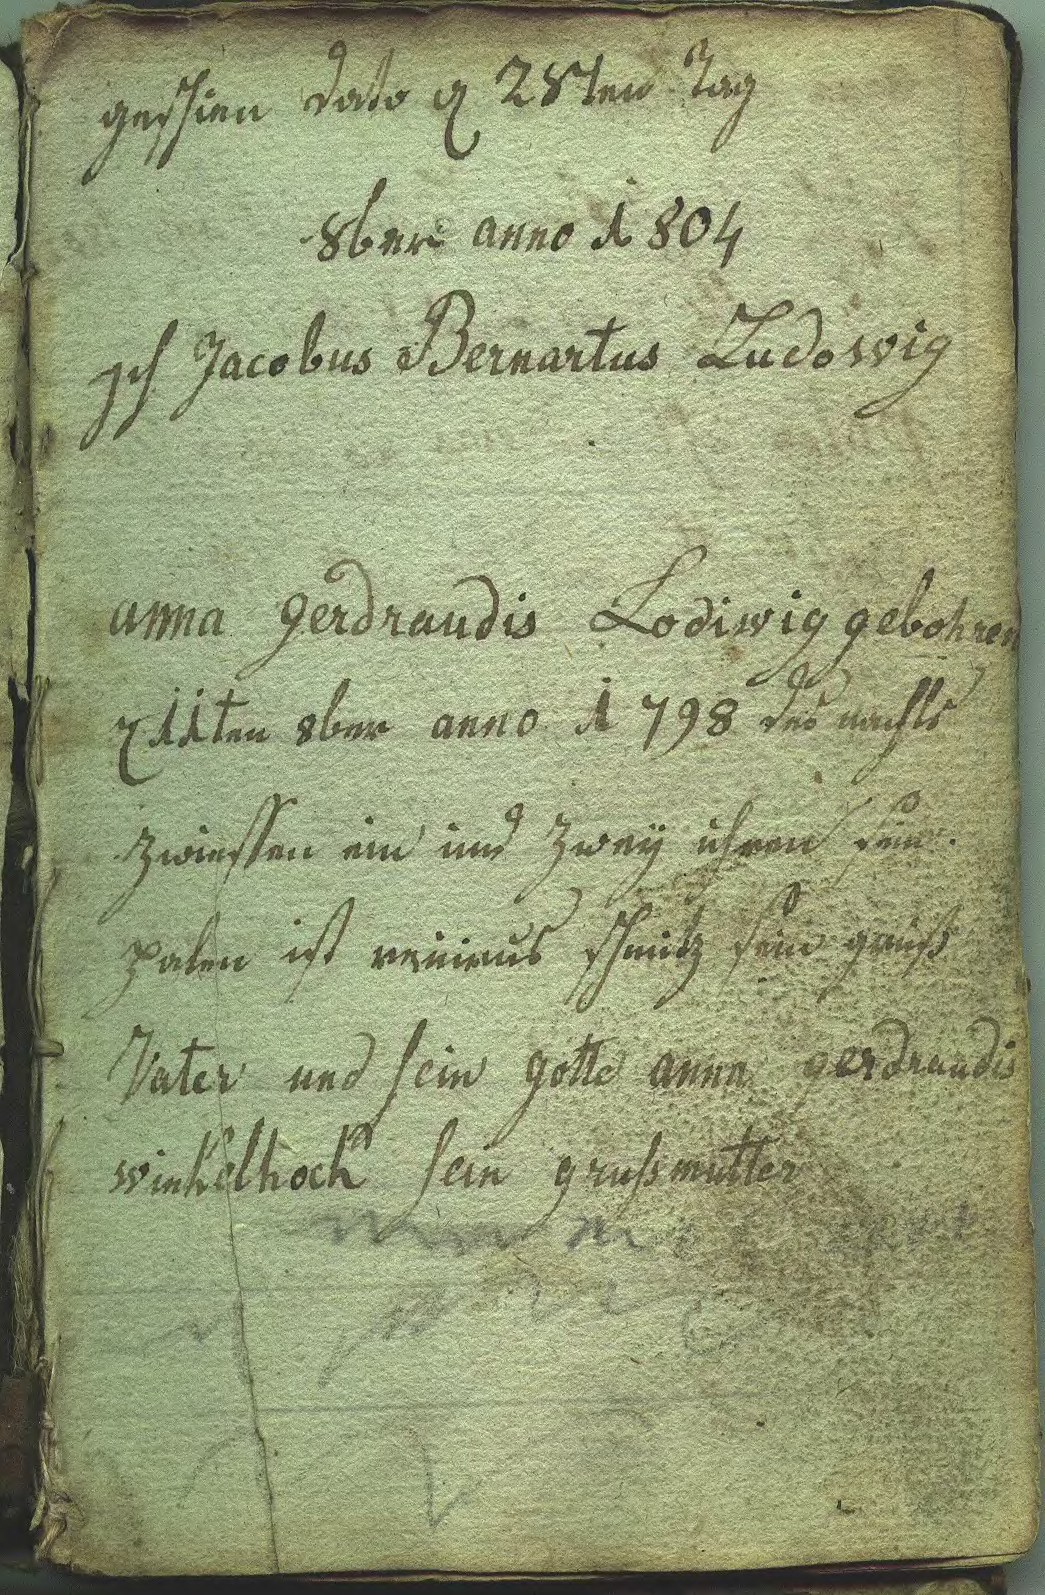 geschien dato d 28ten Tag
8ber anno 1804
Ich Jacobus Bernartus Ludowig
anna gerdraudis Lodiwig gebohren
d 11ten 8ber anno 1798 des nachts
zwiessen ein und zweÿ uhren sein
paten ist reinerus schmitz sein gruß
Vater und sein gotte anna gerdraudis
winkelhock sein grußmutter